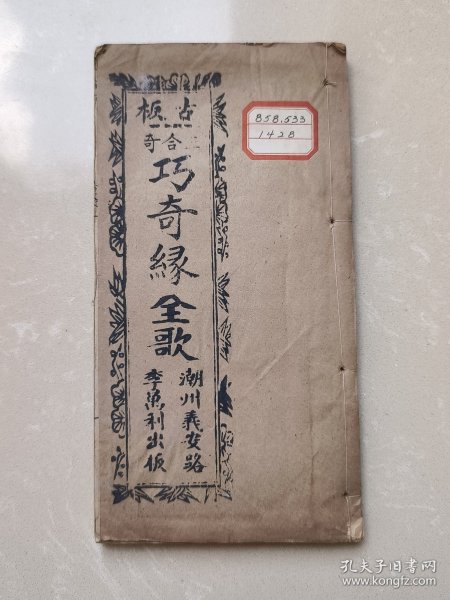 古板
合奇
巧奇緣全歌
潮州義安路
李萬利出板
858.533
1428
孔夫子旧书网
www.kongfz.com